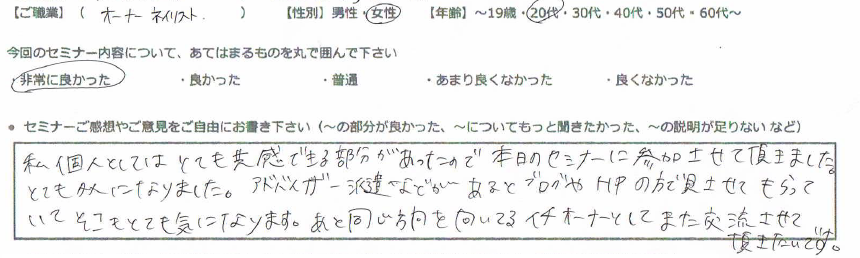 【ご職業】（ オーナーネイリスト. ） 【性別】男性・女性 【年齢】～19歳・20代・30代・40代・50代・60代～
今回のセミナー内容について、あてはまるものを丸で囲んで下さい
・非常に良かった ・良かった ・普通 ・あまり良くなかった ・良くなかった
● セミナーご感想やご意見をご自由にお書き下さい（～の部分が良かった、～についてもっと聞きたかった、～の説明が足りない など）
私個人としてはとても共感できる部分があったので本日のセミナーに参加させて頂きました。
とてもタメになりました。アドバイザー派遣などがあるとブログやHPの方で見させてもらって
いてそこもとても気になります。あと同じ方向を向いてるイチオーナーとしてまた交流させて
頂きたいです。